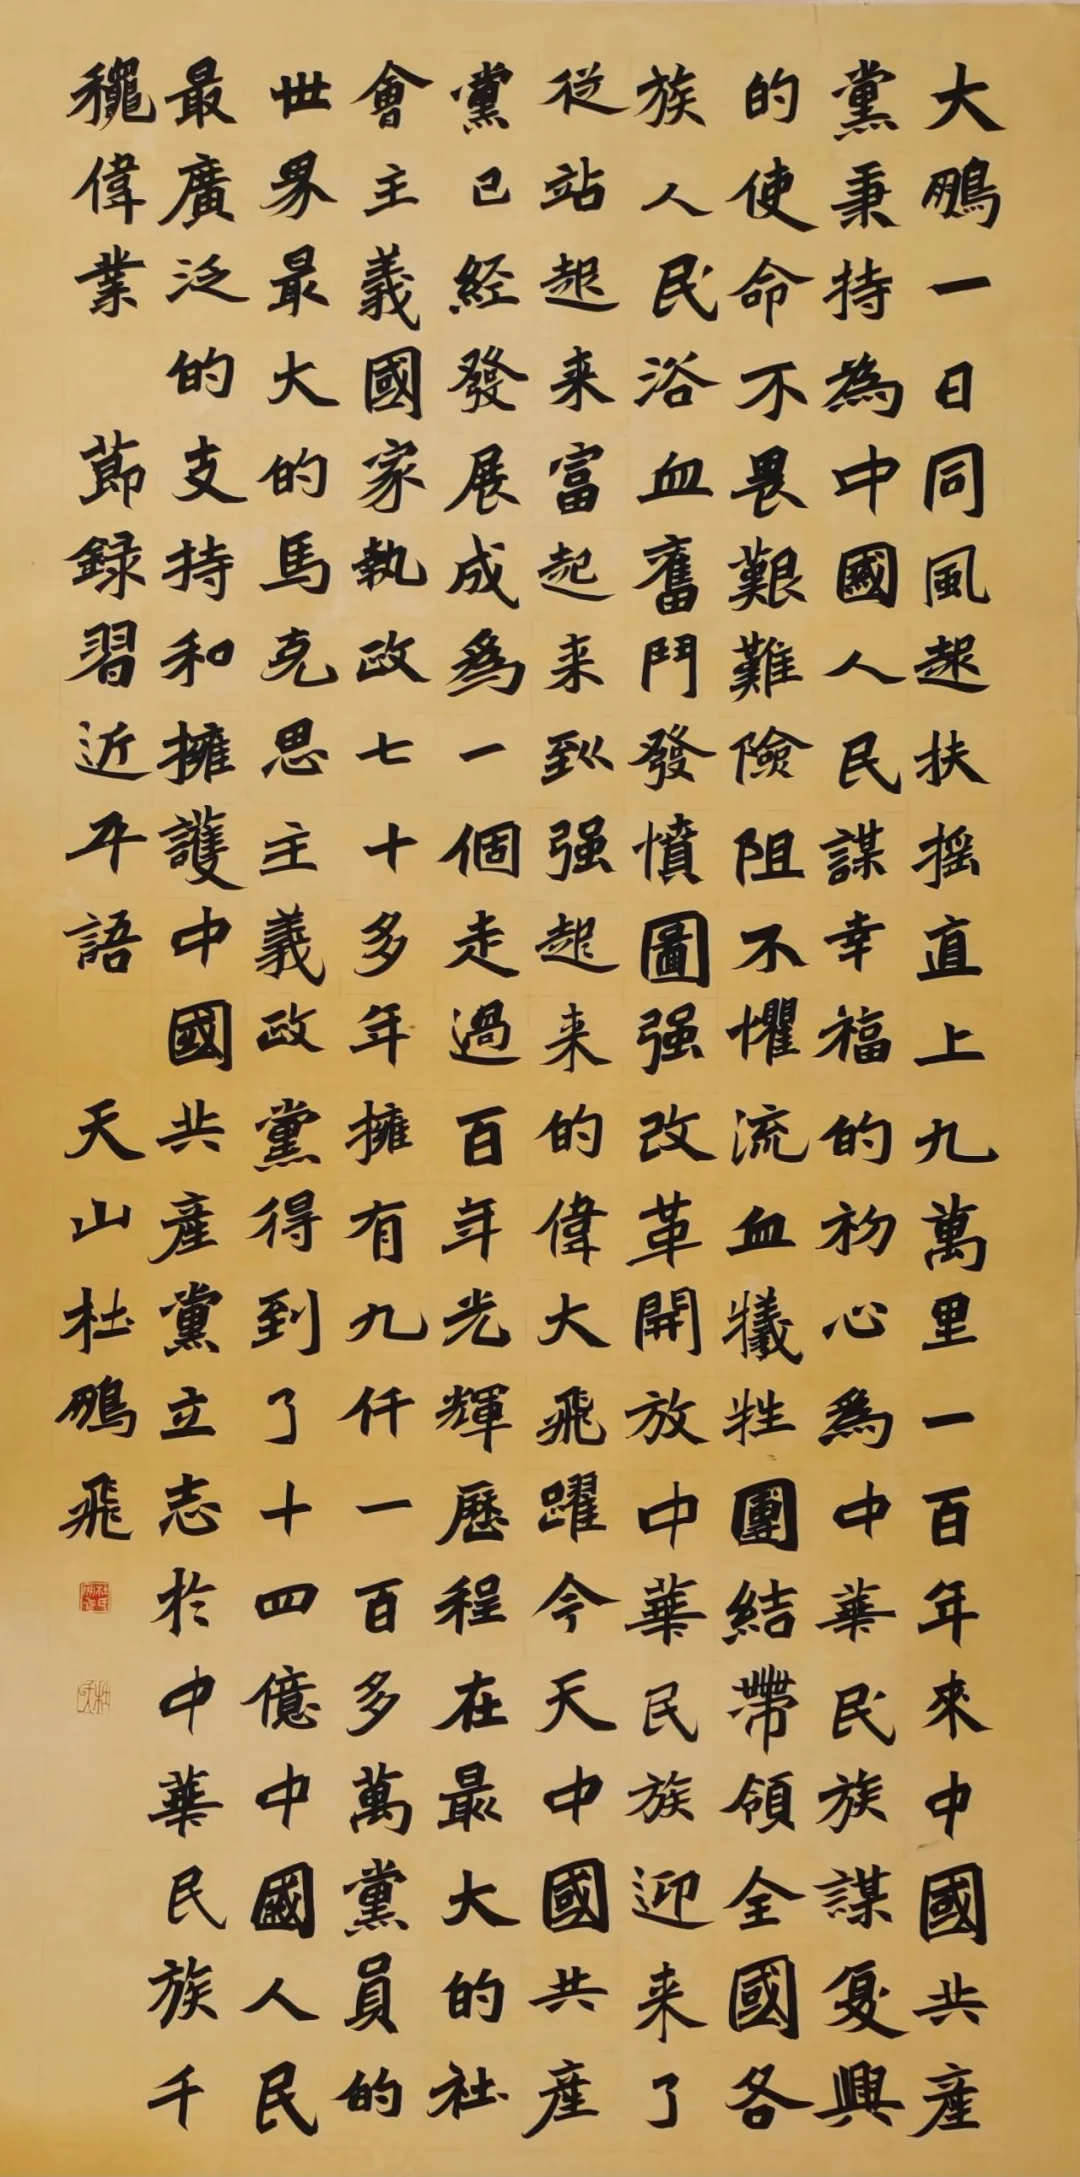 大鵬一日同風起扶摇直上九萬里一百年來中國共産
黨秉持為中國人民謀幸福的初心爲中華民族謀复興
的使命不畏艱難險阻不懼流血犧牲團結帶領全國各
族人民浴血奮鬥發憤圖强改革開放中華民族迎来了
從站起来富起来到强起来的偉大飛躍今天中國共産
黨已經發展成爲一個走過百年光輝歷程在最大的社
會主義國家執政七十多年擁有九仟一百多萬黨員的
世界最大的馬克思主義政黨得到了十四億中國人民
最廣泛的支持和擁護中國共産黨立志於中華民族千
龝偉業 節録習近平語 天山杜鵬飛